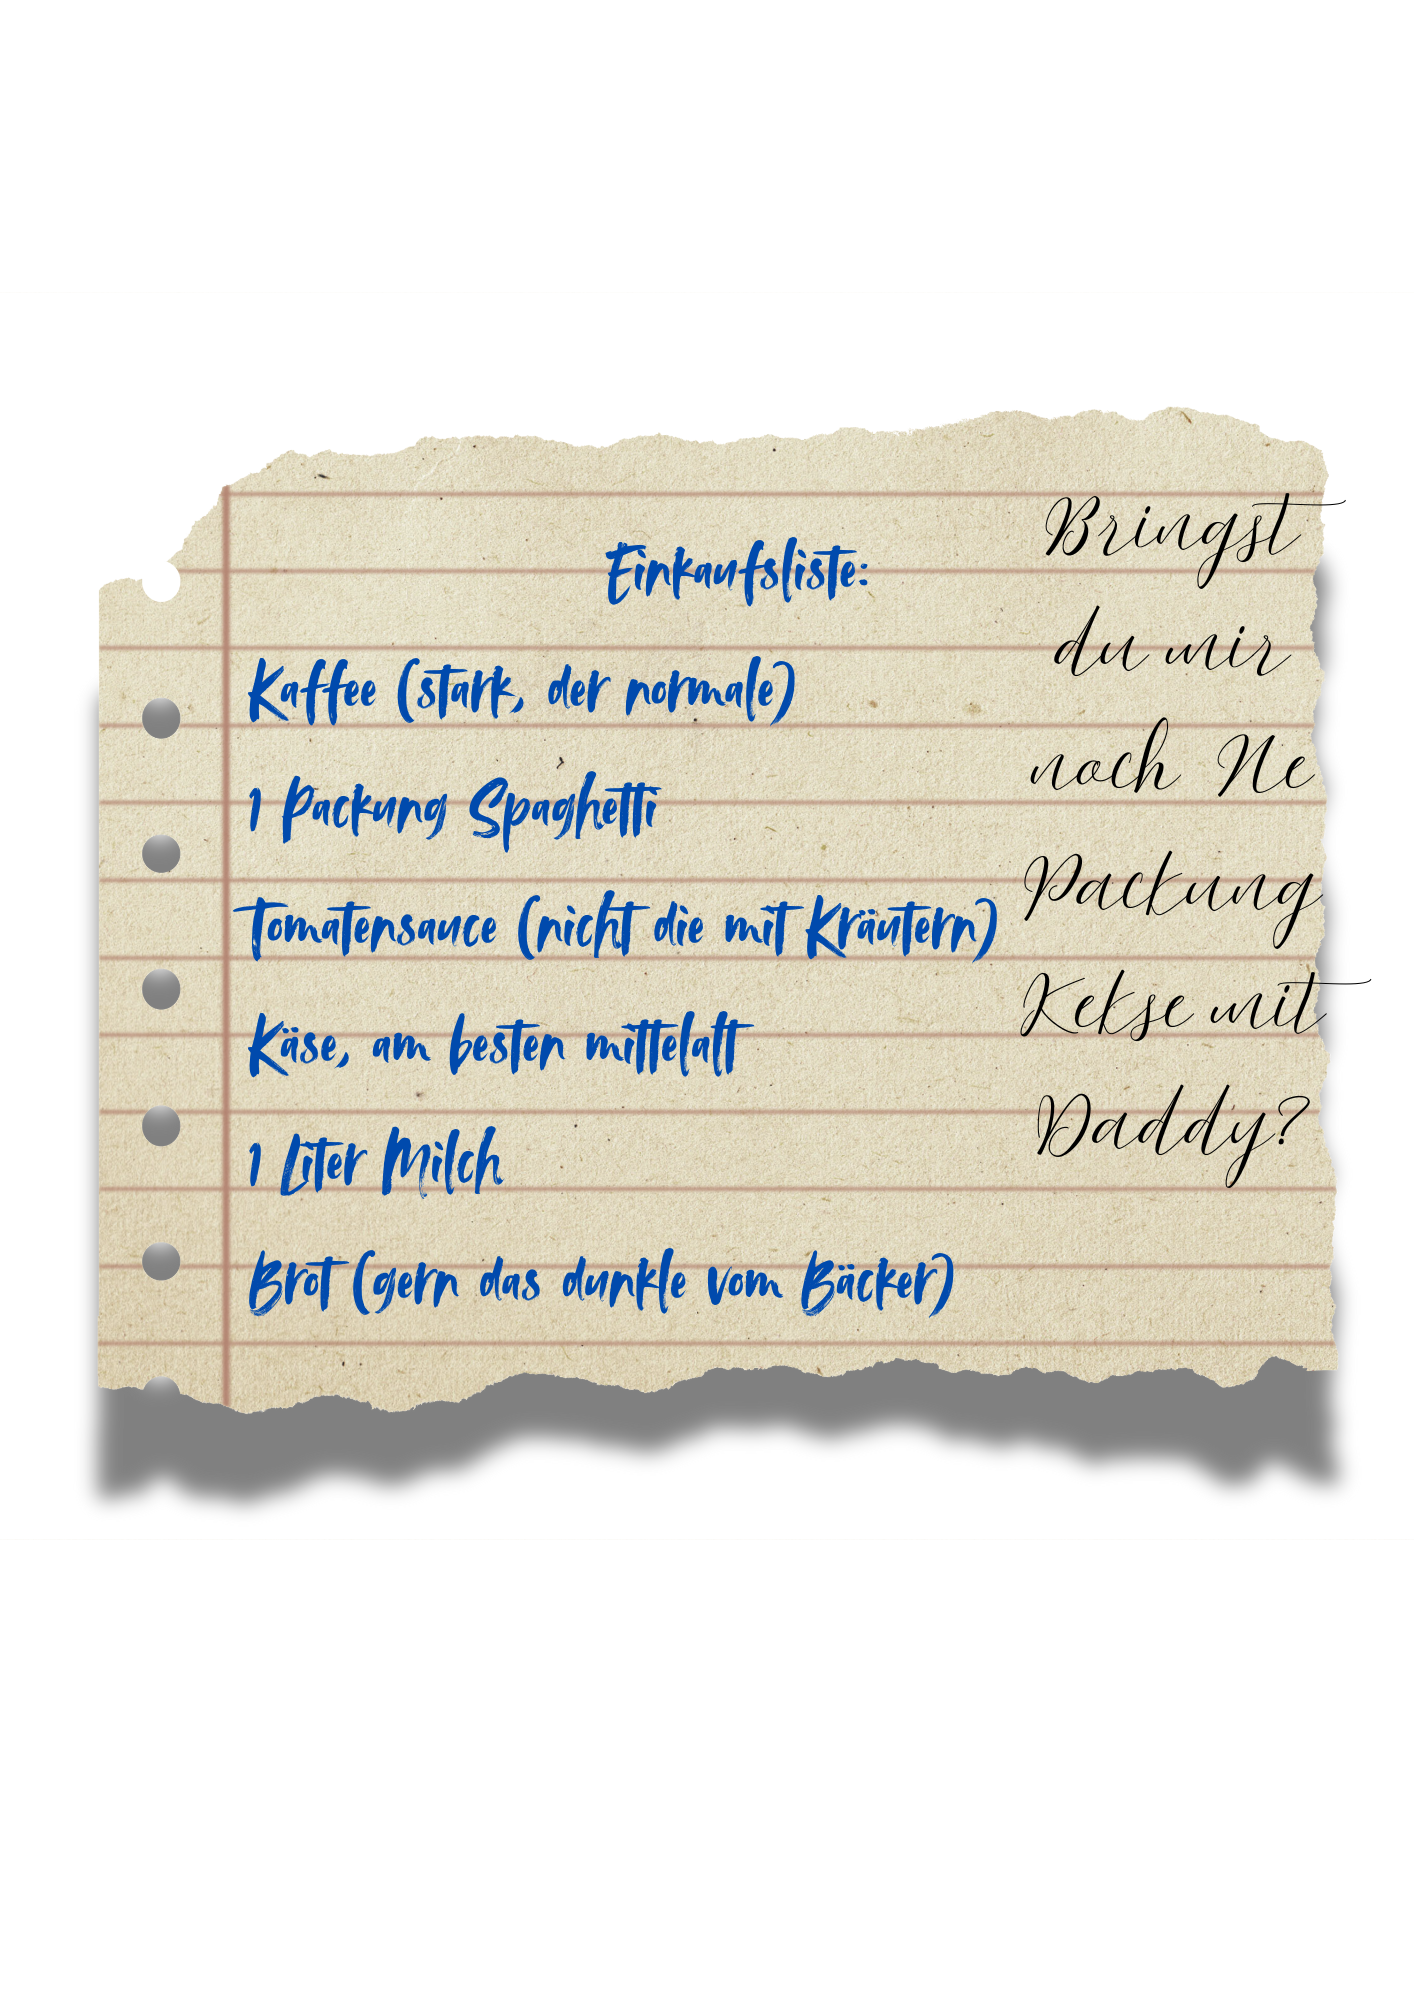 Einkaufsliste:
Kaffee (stark, der normale)
1 Packung Spaghetti
Tomatensauce (nicht die mit Kräutern)
Käse, am besten mittelalt
1 Liter Milch
Brot (gern das dunkle vom Bäcker)
Bringst
du mir
noch Ne
Packung
Kekse mit
Daddy?